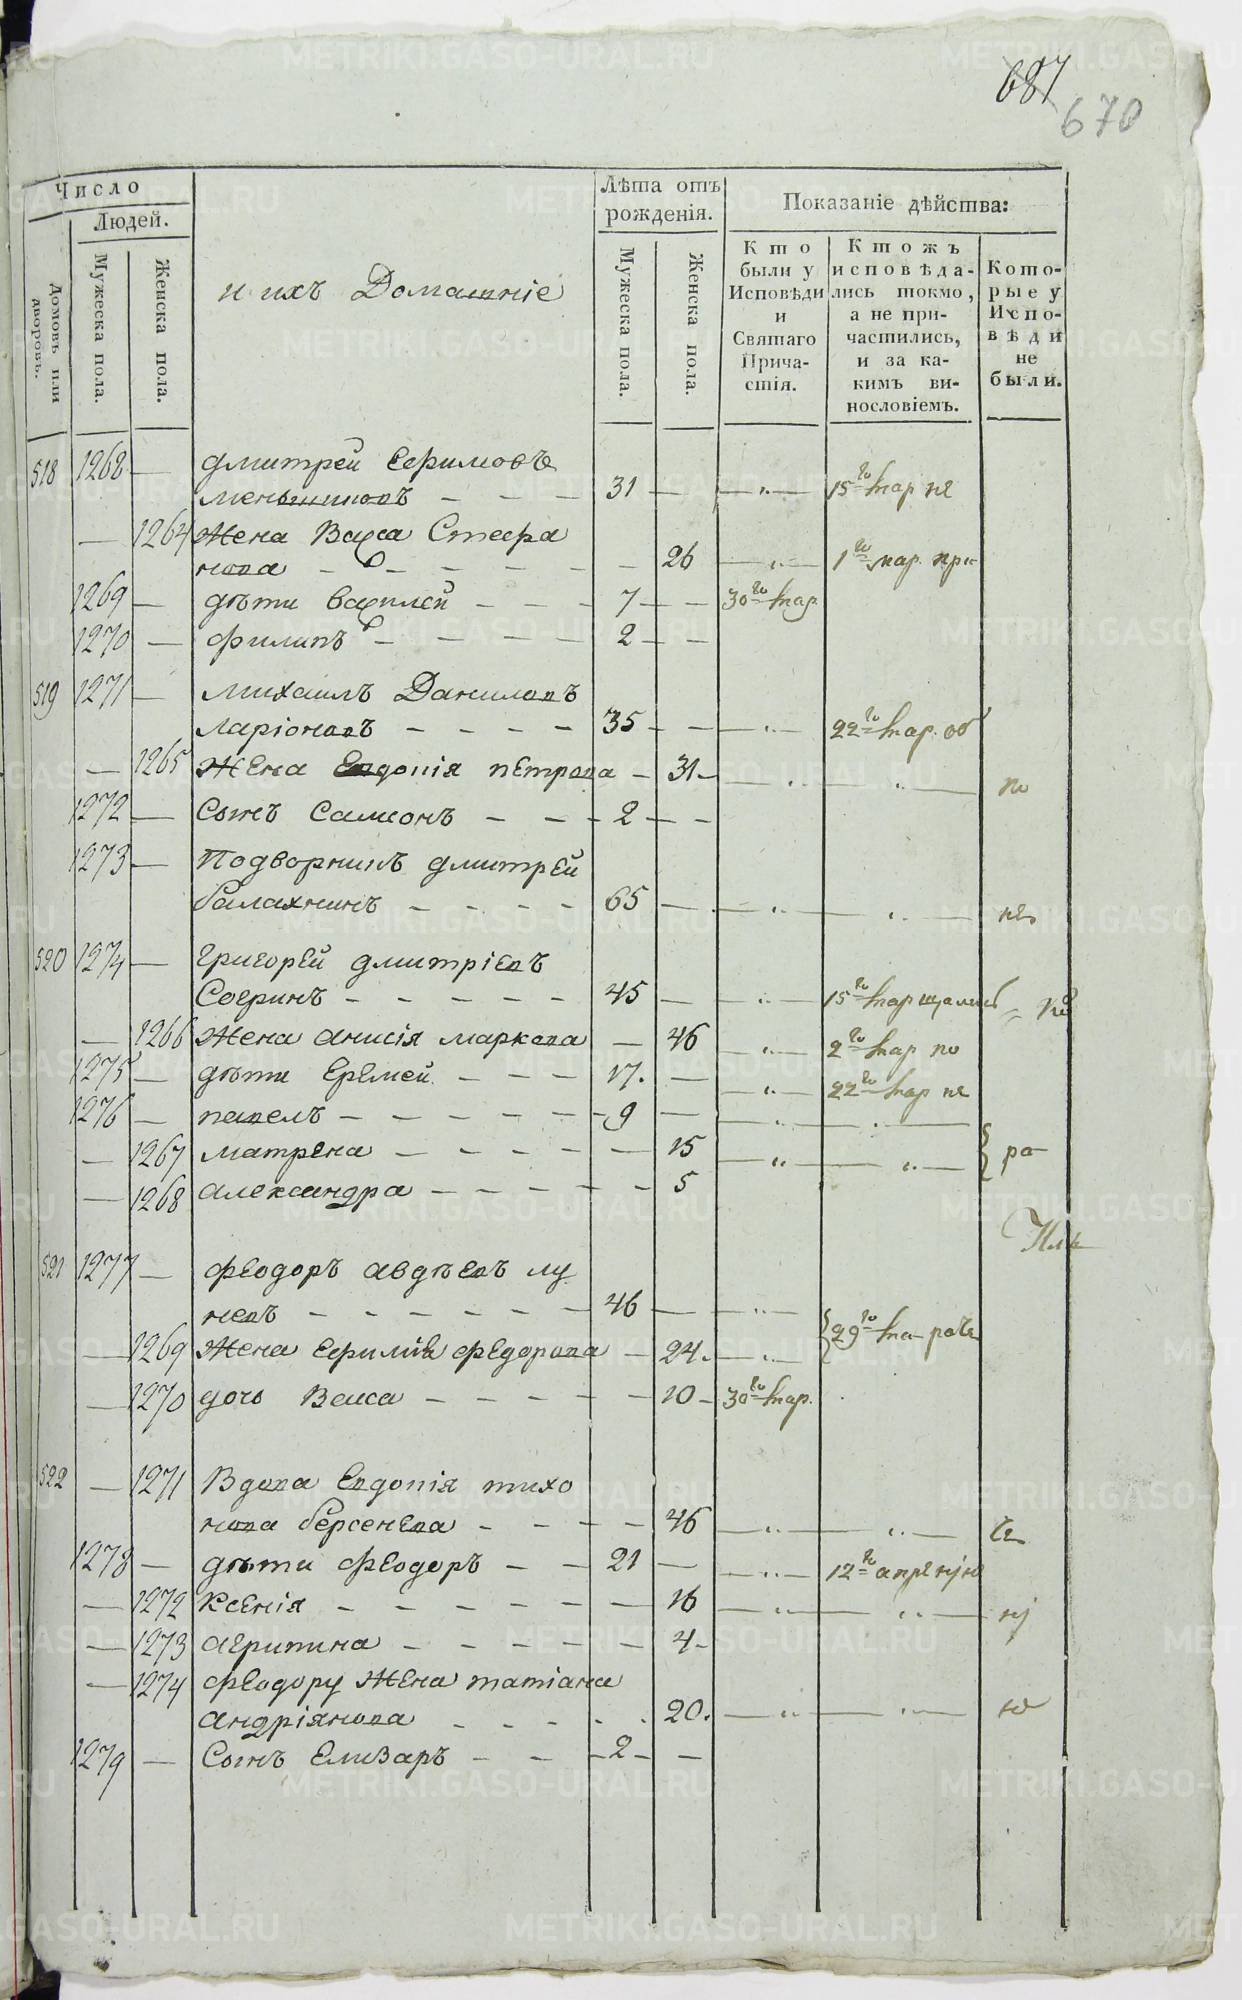 687
670
Число
Людей.
Домовъ или дворовъ.
Мужеска пола.
Женска пола.
и ихъ Домашніе
Лѣта отъ рожденія.
Мужеска пола.
Женска пола.
Показаніе дѣйства:
Кто были у Исповѣди и Святаго Причастія.
Ктожъ исповѣдались токмо, а не причастились, и за какимъ винословіемъ.
Которые у Исповѣди не были.
518 1268 — дмитрей Ефимовъ
меньшиковъ — — — 31 — — „ — 15го мар не
— 1264 Жена Васса Стефа
нова — — — — — — 26 — „ — 1го мар. при
1269 — дѣти василей — — — 7 — — 30го мар.
1270 — филипъ — — — — 2 — —
519 1271 — михаилъ Даниловъ
ларіоновъ — — — — 35 — — „ — 22го мар. об
— 1265 Жена Евдокія петрова — 31 — — „ — „ — по
1272 — Сынъ Самсонъ — — — 2 — —
1273 — Подворникъ дмитрей
балахнинъ — — — — 65 — — „ — „ — не
520 1274 — григорей дмитріевъ
Согринъ — — — — — 45 — — „ — 15го мар
— 1266 Жена анисія маркова — 46 — „ — 2го мар по
1275 — дѣти Еремей — — — 17. — — „ — 22го мар не
1276 — павелъ — — — — — 9 — — „ — „ —
— 1267 матрена — — — — — 15 — „ — „ — ра
— 1268 александра — — — — — 5
521 1277 — феодоръ авдѣевъ лу
невъ — — — — — — 46 — — „ —
— 1269 Жена Ефимія федорова — 24. — „ — 29го ма
— 1270 дочь Васса — — — — — 10 — 30го мар.
522 — 1271 Вдова Евдокія тихо
нова берсенева — — — — 46 — „ — „ —
1278 — дѣти феодоръ — — 21 — — „ — 12го апре
— 1272 Ксенія — — — — — — 16 — „ — „ —
— 1273 агрипина — — — — — 4 —
— 1274 феодору Жена татіана
андріянова — — — — — 20. — „ — „ —
1279 — Сынъ Елизаръ — — — 2 — —
METRIKI.GASO-URAL.RU